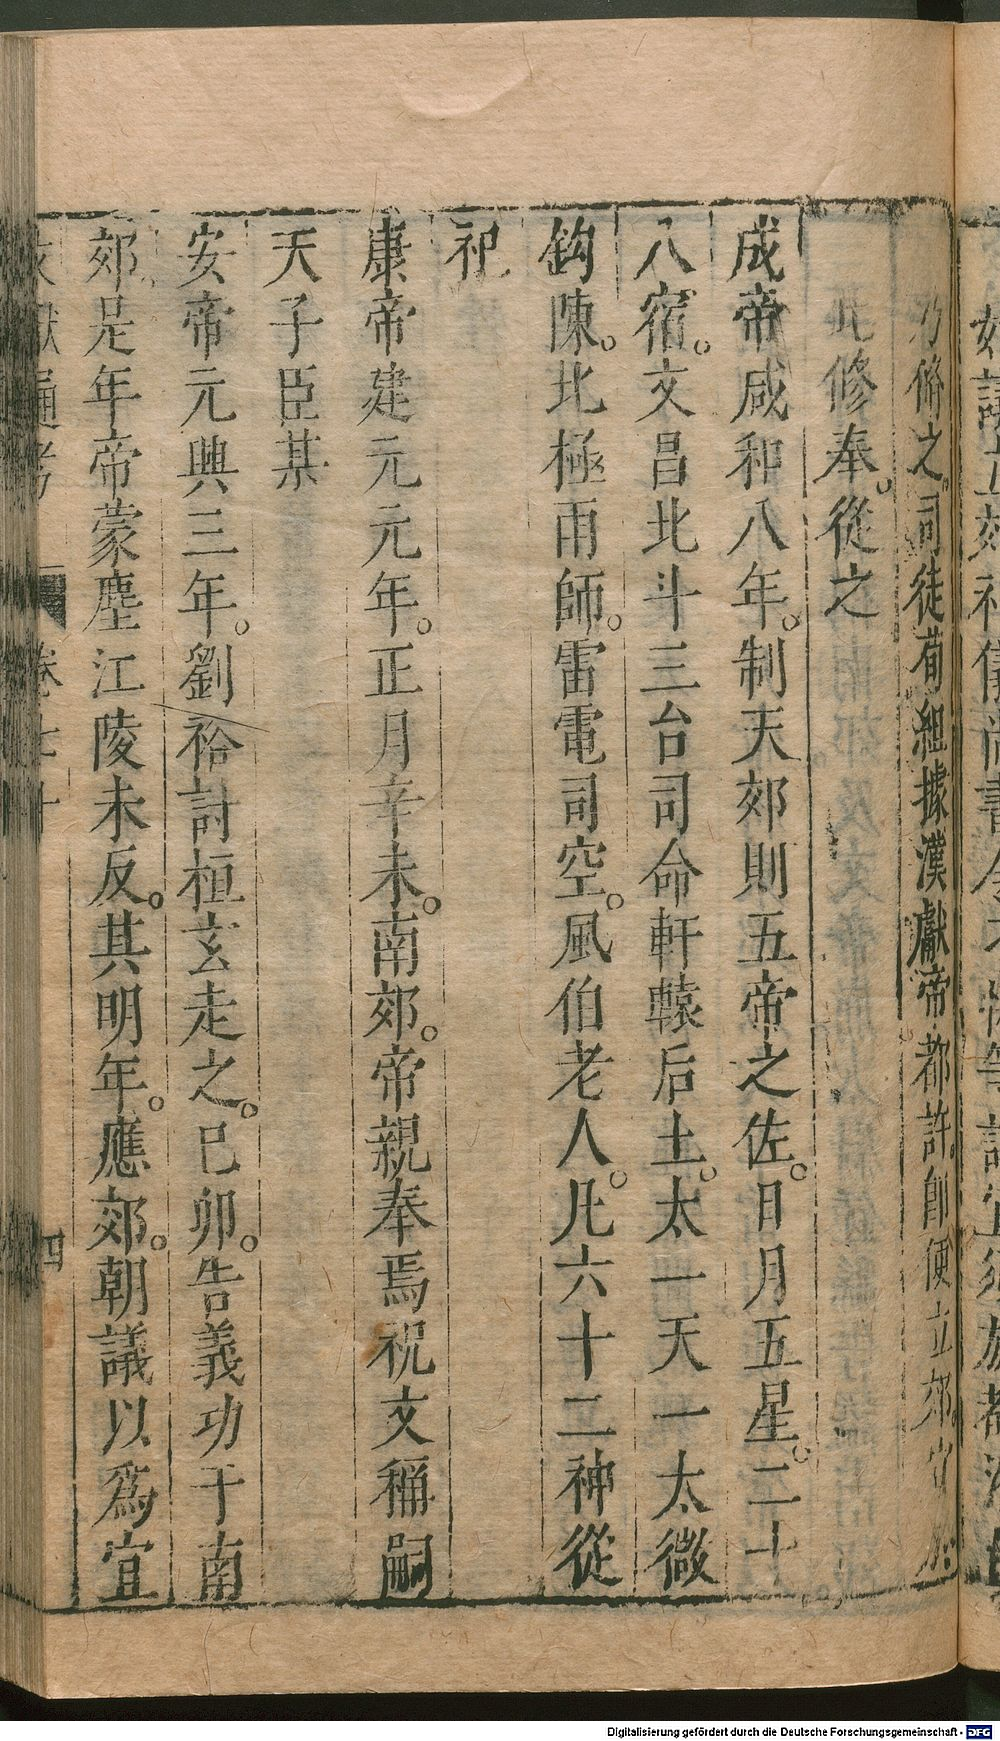 乃脩之司徒荀組據漢獻帝都許卽便立郊宜於
此修奉。從之
成帝咸和八年。制天郊則五帝之佐。日月五星。二十
八宿。文昌北斗三台司命軒轅后土。太一天一太微
鈎陳。北極雨師。雷電司空。風伯老人。凡六十二神從
祀
康帝建元元年。正月辛未。南郊。帝親奉焉祝文稱嗣
天子臣某
安帝元興三年。劉裕討桓玄走之。已卯。告義功于南
郊是年帝蒙塵江陵未反。其明年。應郊。朝議以爲宜
文獻通考 卷七十 四
Digitalisierung gefördert durch die Deutsche Forschungsgemeinschaft - DFG